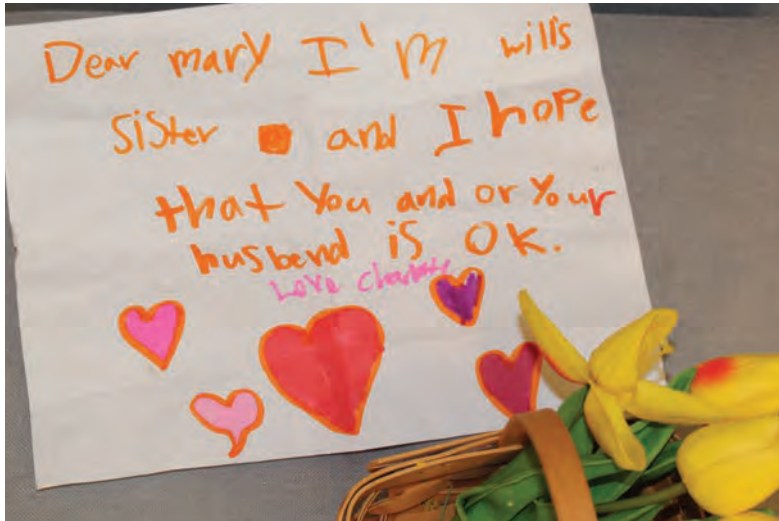 Dear mary I'm will's
sister and I hope
that you and or your
husbend is OK.
Love Charlotte